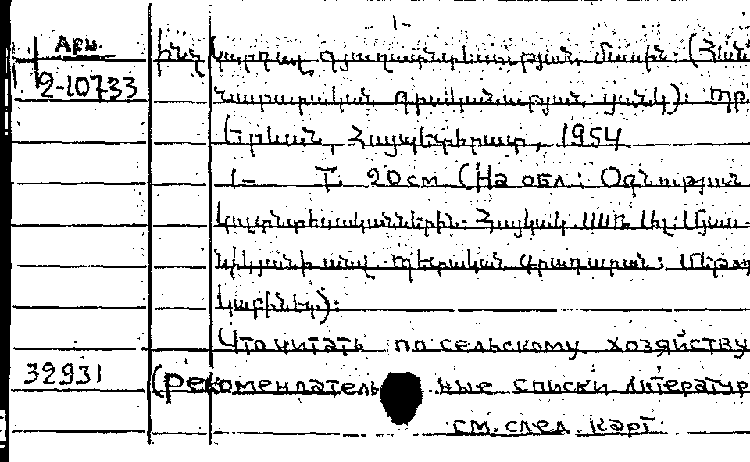 -1-
Арм. Ինչ կարդալ գյուղատնտեսության մասին: (Հան
2-10733 նարարական գրականության ցանկ):
Երևան, Հայպետհրատ, 1954
1- Т. 20 см (На обл.: Օգնություն
կոլտնտեսականներին. Հայկական ՍՍՌ
պետական գրադարան:
կաբինետ):
Что читать по сельскому хозяйству
32931 (рекомендатель ные списки литератур
см. след. карт.